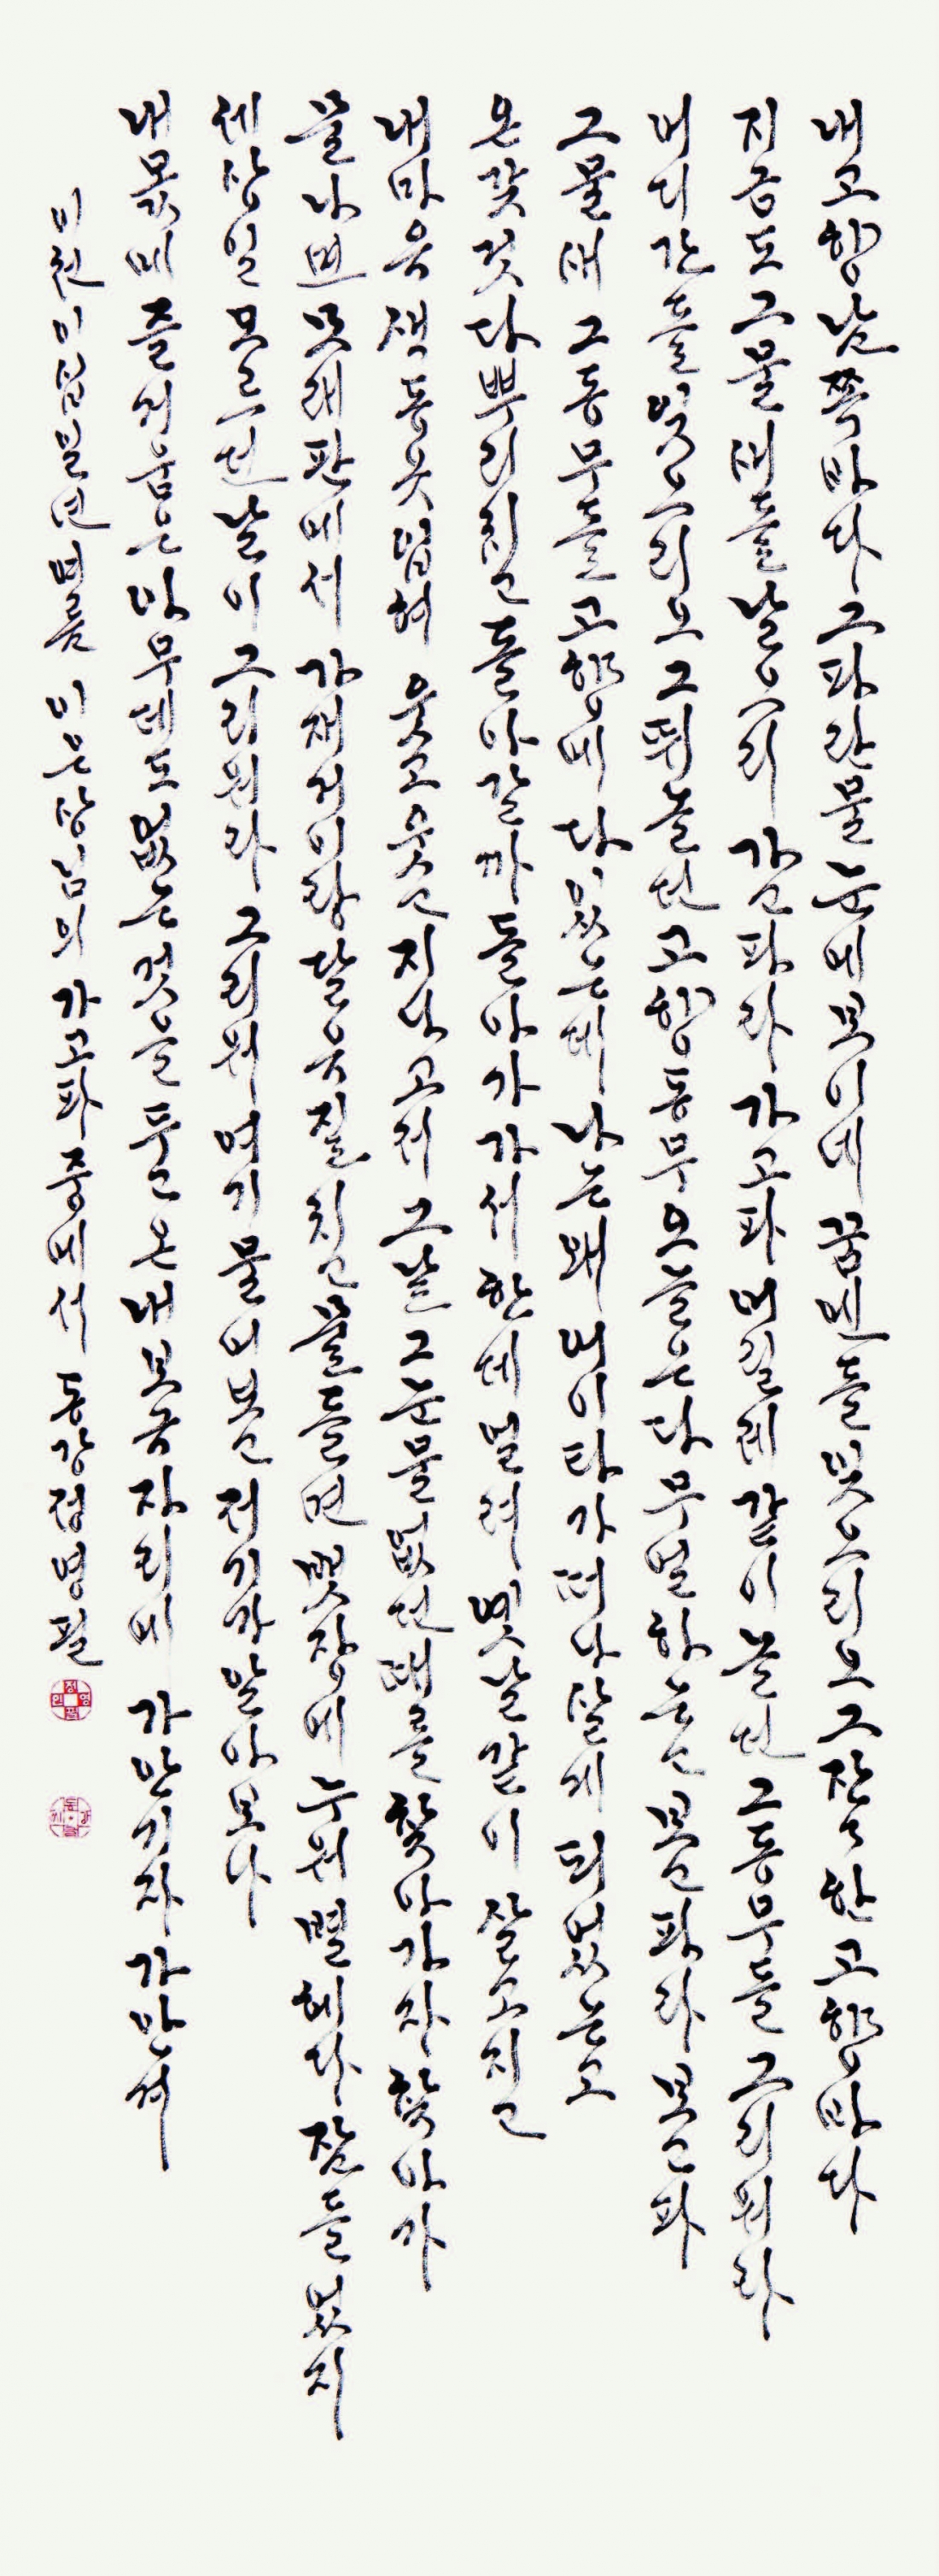 내고향남쪽바다 그파란물 눈에보이네 꿈엔들 잊으리오 그잔잔한고향바다
지금도 그물새들 날으리 가고파라 가고파 어릴제 같이 놀던 그동무들 그리워라
어디간들 잊으리오 그뛰놀던 고향동무 오늘은 다무얼하는고 보고파라 보고파
그물새 그동무들 고향에 다있는데 나는왜 어이타가 떠나살게 되었는고
온갖것 다뿌리치고 돌아갈까 돌아가 가서 한데 얼려 옛날같이 살고지고
내마음 색동옷 입혀 웃고웃고 지나고저 그날 그눈물없던때를 찾아가자 찾아가
물나면 모래판에서 가재거이랑 달음질치고 물들면 뱃장에 누워 별헤다 잠들었지
세상일 모르던 날이 그리워라 그리워 여기 물어보고 저기가 알아보나
내몫에 즐거움은 아무데도 없는것을 두고온 내보금자리에 가안기자 가안겨
이천이십일년 여름 이은상님의 가고파중에서 동강정영필
정영필인